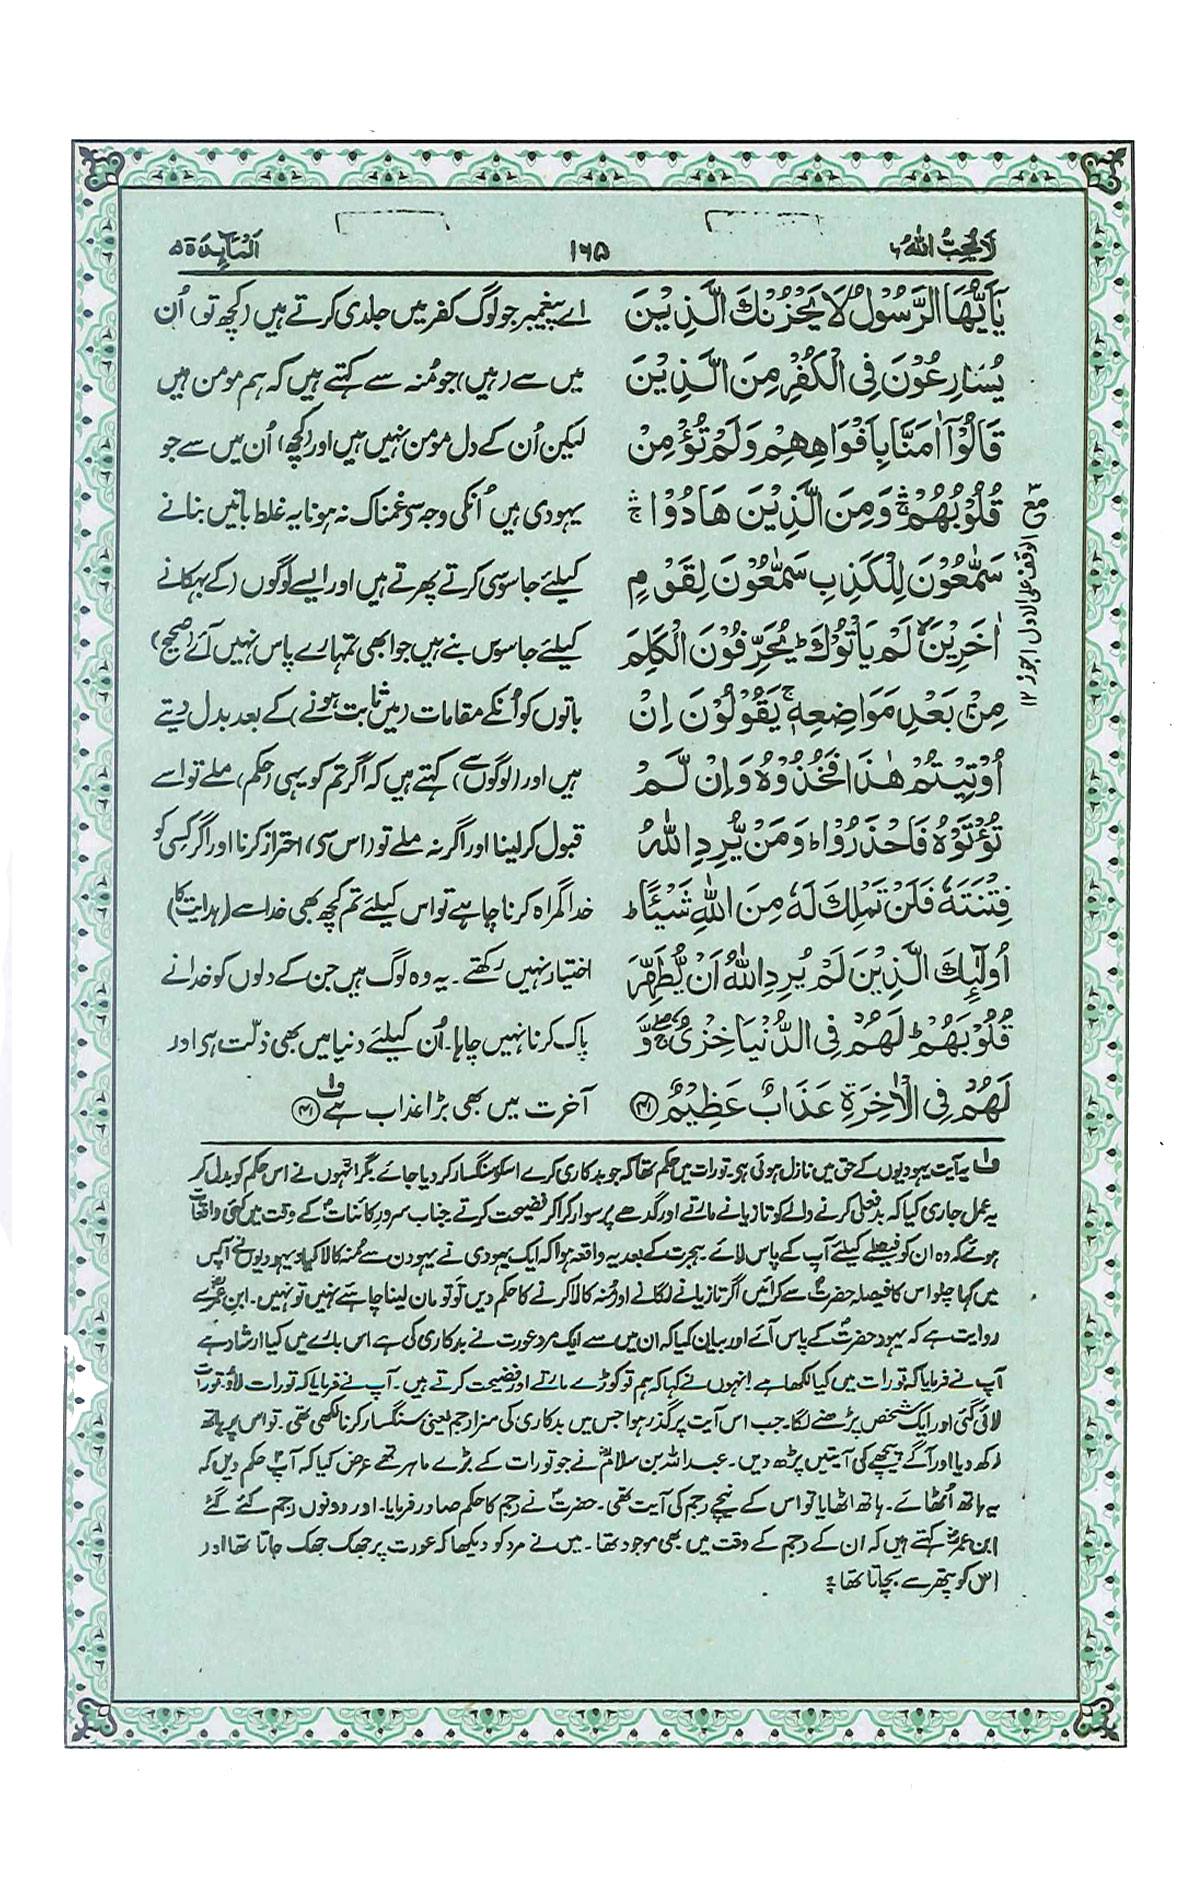 لَا يُحِبُّ اللّٰهُ ۶
۱۶۵
اَلْمَآئِدَة ۵
يٰٓاَيُّهَا الرَّسُوْلُ لَا يَحْزُنْكَ الَّذِيْنَ
يُسَارِعُوْنَ فِي الْكُفْرِ مِنَ الَّذِيْنَ
قَالُوْٓا اٰمَنَّا بِاَفْوَاهِهِمْ وَلَمْ تُؤْمِنْ
قُلُوْبُهُمْ ۛۚ وَمِنَ الَّذِيْنَ هَادُوْا ۛۚ
سَمّٰعُوْنَ لِلْكَذِبِ سَمّٰعُوْنَ لِقَوْمٍ
اٰخَرِيْنَ ۙ لَمْ يَاْتُوْكَ ؕ يُحَرِّفُوْنَ الْكَلِمَ
مِنْۢ بَعْدِ مَوَاضِعِهٖ ۚ يَقُوْلُوْنَ اِنْ
اُوْتِيْتُمْ هٰذَا فَخُذُوْهُ وَاِنْ لَّمْ
تُؤْتَوْهُ فَاحْذَرُوْا ؕ وَمَنْ يُّرِدِ اللّٰهُ
فِتْنَتَهٗ فَلَنْ تَمْلِكَ لَهٗ مِنَ اللّٰهِ شَيْئًا ؕ
اُولٰٓئِكَ الَّذِيْنَ لَمْ يُرِدِ اللّٰهُ اَنْ يُّطَهِّرَ
قُلُوْبَهُمْ ؕ لَهُمْ فِي الدُّنْيَا خِزْيٌ ۚۖ وَّ
لَهُمْ فِي الْاٰخِرَةِ عَذَابٌ عَظِيْمٌ ﴿۴۱﴾
اے پیغمبر جو لوگ کفر میں جلدی کرتے ہیں (کچھ تو) اُن
میں سے (ہیں) جو مُنہ سے کہتے ہیں کہ ہم مومن ہیں
لیکن اُن کے دل مومن نہیں ہیں اور (کچھ) اُن میں سے جو
یہودی ہیں اُنکی وجہ سے غمناک نہ ہونا یہ غلط باتیں بنانے
کیلئے جاسوسی کرتے پھرتے ہیں اور ایسے لوگوں (کے بہکانے
کیلئے جاسوس بنے ہیں جو ابھی تمہارے پاس نہیں آئے (صحیح)
باتوں کو اُنکے مقامات (میں ثابت ہونے) کے بعد بدل دیتے
ہیں اور (لوگوں سے) کہتے ہیں کہ اگر تم کو یہی (حکم) ملے تو اسے
قبول کر لینا اور اگر نہ ملے تو (اس سے) احتراز کرنا اور اگر کسی کو
خدا گمراہ کرنا چاہے تو اس کیلئے تم کچھ بھی خدا سے (ہدایت کا)
اختیار نہیں رکھتے ۔ یہ وہ لوگ ہیں جن کے دلوں کو خدا نے
پاک کرنا نہیں چاہا۔ اُن کیلئے دنیا میں بھی ذلّت ہے اور
آخرت میں بھی بڑا عذاب ہے ؁۱ ﴿۴۱﴾
مع ۳
الوقف علی الاول اجوز ۱۲
؁۱ یہ آیت یہودیوں کے حق میں نازل ہوئی ہے۔ تورات میں حکم تھا کہ جو بدکاری کرے اسکو سنگسار کر دیا جائے مگر انہوں نے اس حکم کو بدل کر
یہ عمل جاری کیا کہ بدفعلی کرنے والے کو تازیانے مارتے اور گدھے پر سوار کرا کر فضیحت کرتے جناب سرور کائنات ؐ کے وقت میں کئی واقعات
ہوئے کہ وہ ان کو فیصلے کیلئے آپ کے پاس لائے ۔ ہجرت کے بعد یہ واقعہ ہوا کہ ایک یہودی نے یہودن سے مُنہ کالا کیا یہودیوں نے آپس
میں کہا چلو اس کا فیصلہ حضرت ؐ سے کرائیں اگر تازیانے لگانے اور مُنہ کالا کرنے کا حکم دیں تو تو مان لینا چاہئے نہیں تو نہیں ۔ ابن عمرؓ سے
روایت ہے کہ یہود حضرت ؐ کے پاس آئے اور بیان کیا کہ ان میں سے ایک مرد عورت نے بدکاری کی ہے اس بارے میں کیا ارشاد ہے
آپ نے فرمایا کہ تورات میں کیا لکھا ہے انہوں نے کہا کہ ہم تو کوڑے مارتے اور فضیحت کرتے ہیں ۔ آپ نے فرمایا کہ تورات لاؤ، تورات
لائی گئی اور ایک شخص پڑھنے لگا۔ جب اس آیت پر گذر ہوا جس میں بدکاری کی سزا رجم یعنی سنگسار کرنا لکھی تھی ۔ تو اس پر ہاتھ
رکھ دیا اور آگے پیچھے کی آیتیں پڑھ دیں ۔ عبداللہ بن سلامؓ نے جو تورات کے بڑے ماہر تھے عرض کیا کہ آپ ؐ حکم دیں کہ
یہ ہاتھ اُٹھائے ۔ ہاتھ اٹھایا تو اس کے نیچے رجم کی آیت تھی ۔ حضرت ؐ نے رجم کا حکم صادر فرمایا ۔ اور دونوں رجم کئے گئے
ابن عمرؓ کہتے ہیں کہ ان کے رجم کے وقت میں بھی موجود تھا ۔ میں نے مرد کو دیکھا کہ عورت پر جھک جھک جاتا تھا اور
اس کو پتھر سے بچاتا تھا